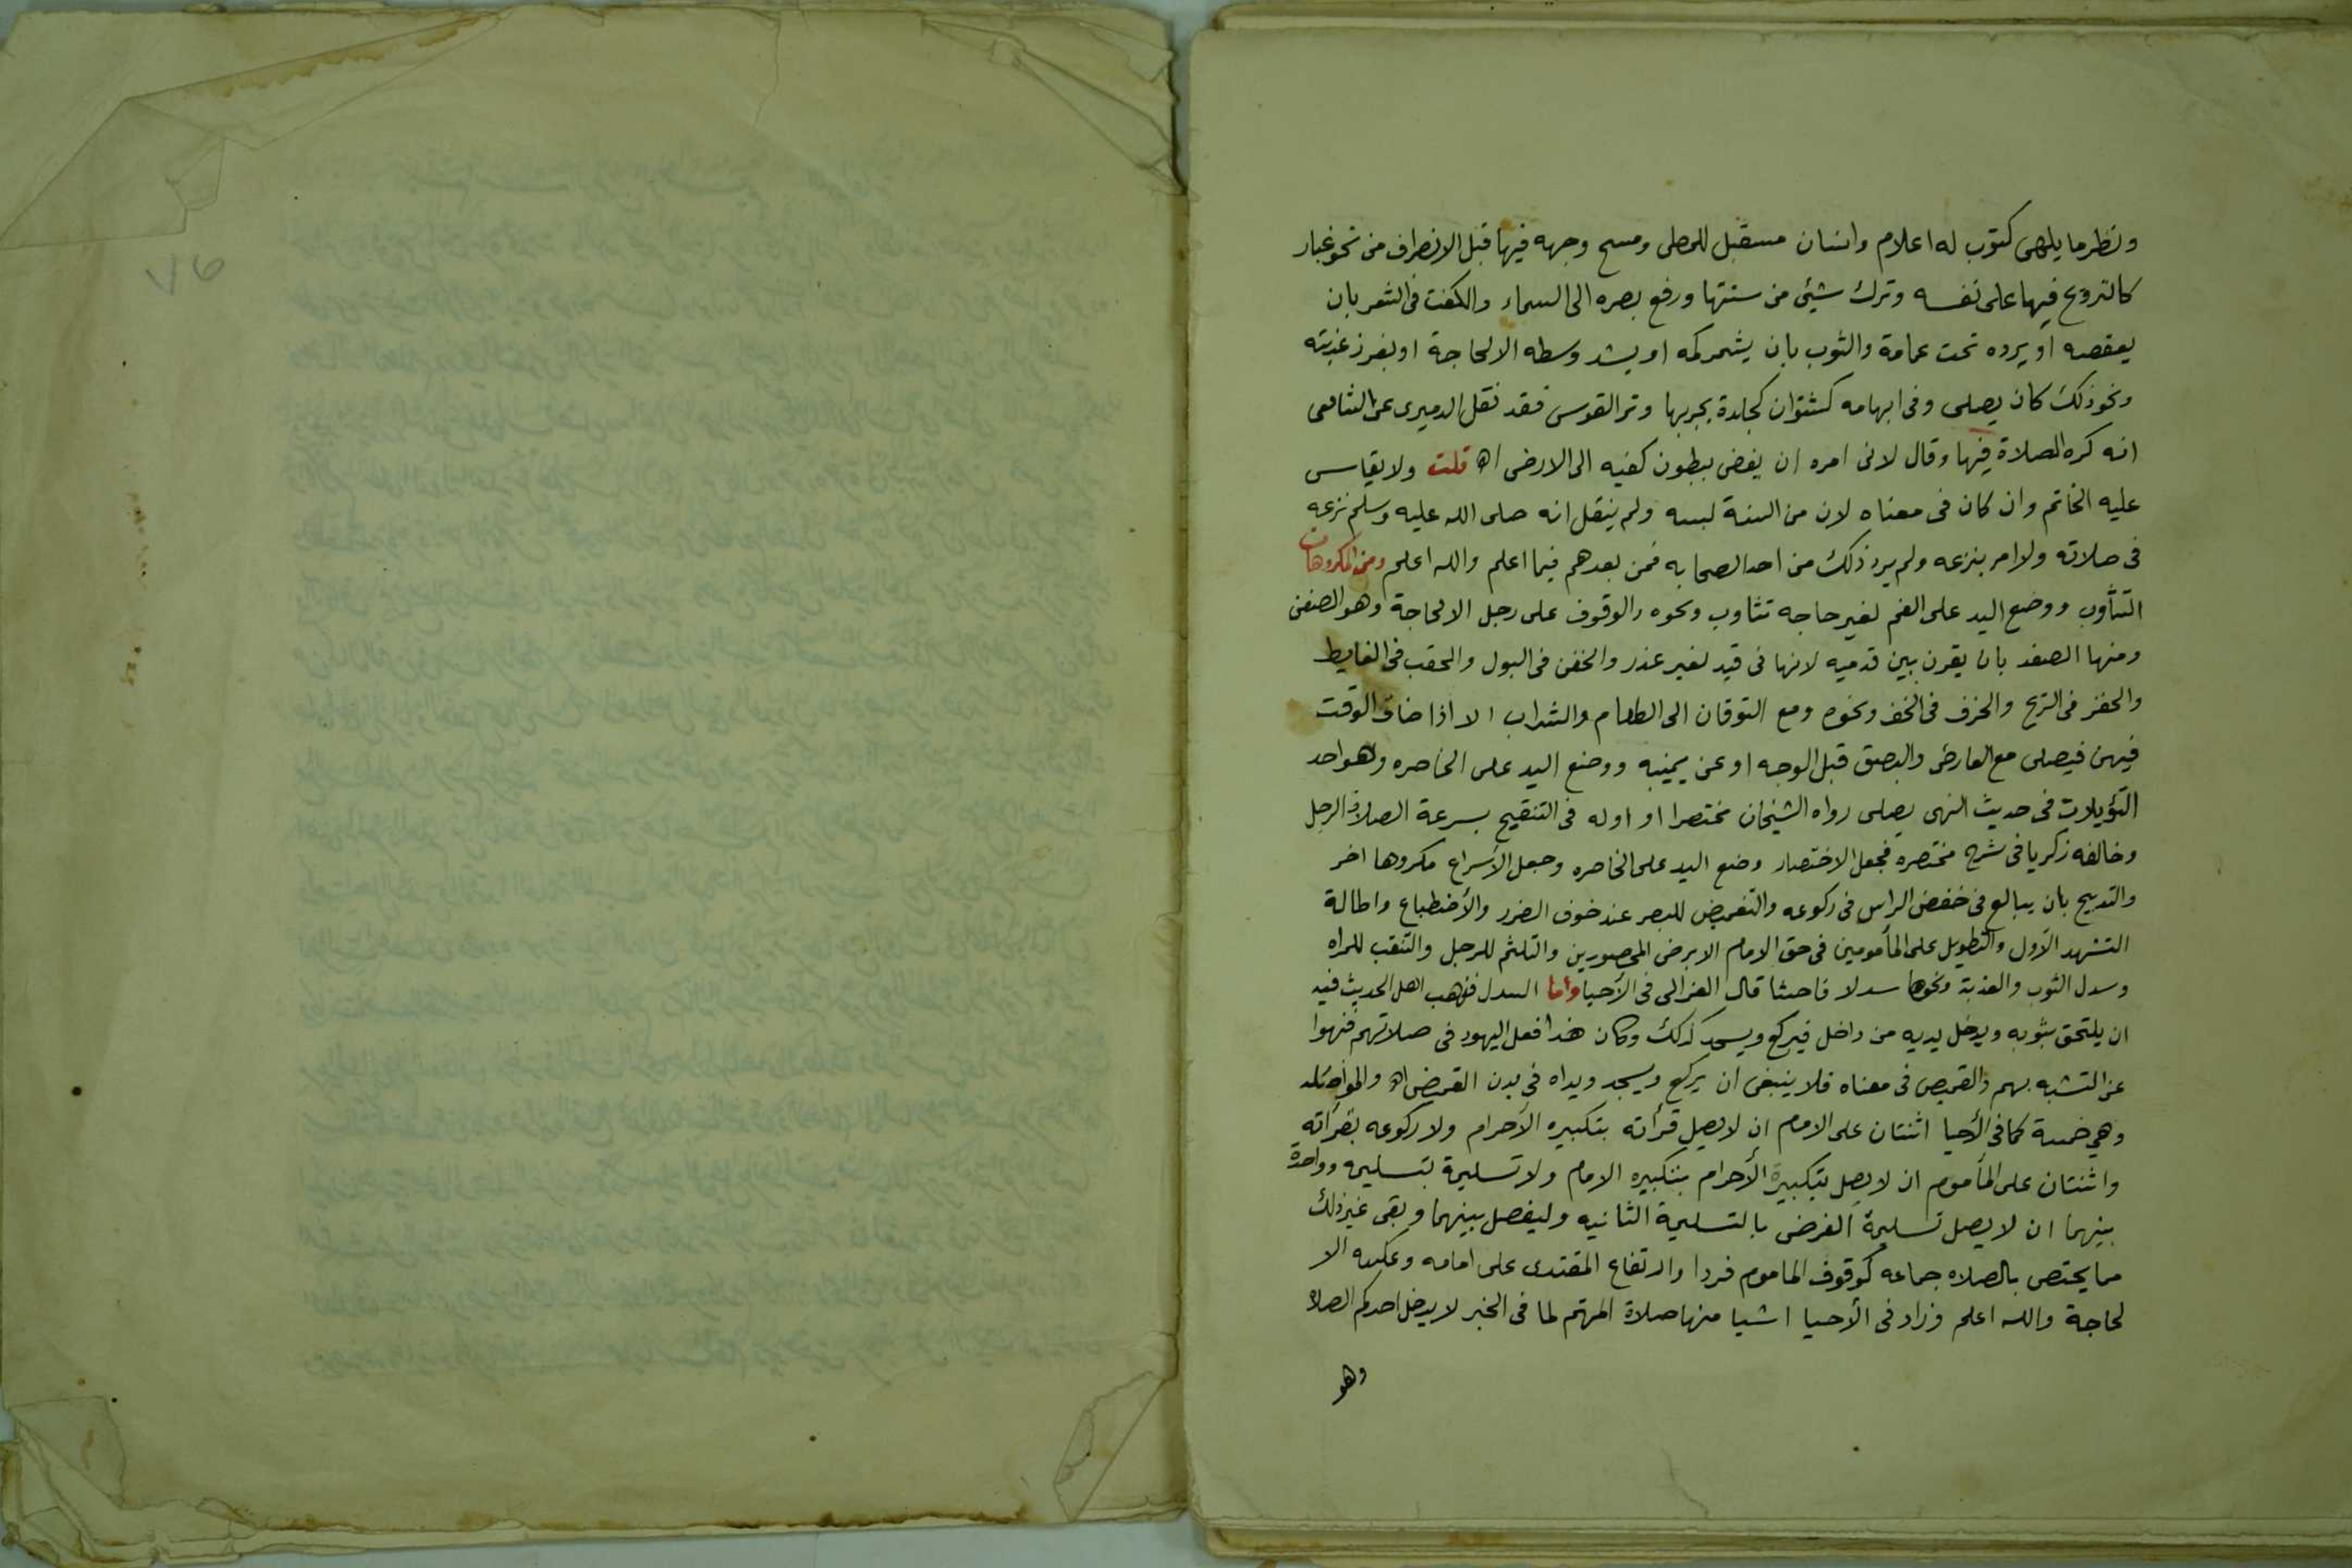 ونظر ما يلهى كثوب له اعلام وانسان مستقبل للمصلى ومسح وجهه فيها قبل الانصراف من نحو غبار
كالتروح فيها على نفسه وترك شيئ من سنتها ورفع بصره الى السماء والكفت فى الشعر بان
يعقصه او يرده تحت عمامة والثوب بان يشمر كمه او يشد وسطه الا لحاجة او يغرز عذبته
ونحو ذلك كان يصلى وفى ابهامه كجلدة يجر بها وتر القوس فقد نقل الدميرى عن الشافعى
انه كره الصلاة فيها وقال لانى امره ان يفضى ببطون كفيه الى الارض اه قلت ولا يقاس
عليه الخاتم وان كان فى معناه لان من السنة لبسه ولم ينقل انه صلى الله عليه وسلم نزعه
فى صلاته ولا امر بنزعه ولم يرد ذلك من احد الصحابه فمن بعدهم فيما اعلم والله اعلم ومن المكروهات
التثأوب ووضع اليد على الفم لغير حاجه تثاوب ونحوه والوقوف على رجل الا لحاجة وهو الصفن
ومنها الصفد بان يقرن بين قدميه لانها فى قيد لغير عذر والحقن فى البول والحقب فى الغايط
والحفز فى الريح والحزق فى الخف ونحوه ومع التوقان الى الطعام والشراب الا اذا ضاق الوقت
فيهن فيصلى مع العارض والبصق قبل الوجه او عن يمينه ووضع اليد على الخاصره وهو احد
التؤيلات فى حديث النهى يصلى رواه الشيخان مختصرا او اوله فى التنقيح بسرعة الصلاة الرجل
وخالفه زكريا فى شرح مختصره فجعل الاختصار وضع اليد على الخاصره وجعل الأسراع مكروها اخر
والتدبيح بان يبالع فى خفض الراس فى ركوعه والتغميض للبصر عند خوف الضرر والأضطباع واطالة
التشهد الأول والتطويل على المأمومين فى حق الامام الا برضى المحصورين والتلثم للرجل والتنقب للمراه
وسدل الثوب والعذبة ونحوها سدلا فاحشا قال الغزالى فى الأحيا واما السدل فذهب اهل الحديث فيه
ان يلتحف بثوبه ويدخل يديه من داخل فيركع ويسجد كذلك وكان هذا فعل اليهود فى صلاتهم فنهوا
عن التشبه بهم والقميص فى معناه فلا ينبغى ان يركع ويسجد ويداه فى بدن القميص اه والمواصله
وهي خمسة كما فى الأحيا اثنتان على الامام ان لا يصل قرأته بتكبيره الأحرام ولا ركوعه بقرأته
واثنتان على المأموم ان لا يصل بتكبيرة الأحرام بتكبيره الامام ولا تسليمة بتسليمه وواحدة
بينهما ان لا يصل تسليمة الفرض بالتسليمة الثانيه وليفصل بينهما وبقى غير ذلك
مما يختص بالصلاه جماعه كوقوف الماموم فردا وارتفاع المقتدى على امامه وعكسه الا
لحاجة والله اعلم وزاد فى الأحيا اشيا منها صلاة المهتم لما فى الخبر لا يدخل احدكم الصلاة
وهو